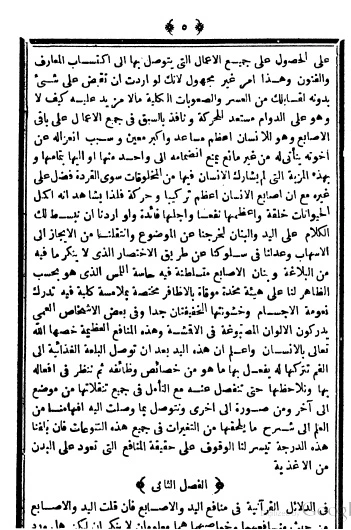 ﴿ ٥ ﴾
على الحصول على جميع الاعمال التى يتوصل بها الى اكتساب المعارف
والفنون وهذا امر غير مجهول لانك لو اردت ان تقبض على شئ
بدونه لقسابلك من العسر والصعوبات الكلية مالا مزيد عليه كيف لا
وهو على الدوام مستعد للحركة و نافذ بالسبق فى جميع الاعمال على باقى
الاصابع وهو للانسان اعظم مساعد واكبر معين و سبب انعزاله عن
اخوته يتأتى له من غير مانع يمنع انضمامه الى واحدة منها او اليها بتمامها و
بهذه المزية التى لم يشارك الانسان فيها من المخلوقات سوى القردة فضل على
غيره مع ان اصابع الانسان اعظم تركيبا و حركة فلذا يشاهد انه اكمل
الحيوانات خلقة واعظمها نفعا واجلها فائدة ولو اردنا ان نبسط لك
الكلام على اليد والبنان لخرجنا عن الموضوع وانتقلنا من الايجاز الى
الاسهاب وعدلنا فى سلوكنا عن طريق الاختصار الذى لا ينكر ما فيه
من البلاغة و بنان الاصابع متسلطنة فيه حاسة اللمس الذى هو بحسب
الظاهر لنا على هيئة مخدة موقاة بالاظافر مختصة بملامسة كلية فيه تدرك
نعومة الاجسام وخشونتها الخفيفتان جدا وفى بعض الاشخاص العمى
يدركون الالوان المصبوغة فى الاقشة وهذه المنافع العظيمة خصها الله
تعالى بالانسان واعلم ان هذه اليد بعد ان توصل البلعة الغذائية الى
الفم تتركها له يفعل بها ما هو من خصائص وظائفه ثم تنظر فى افعاله
بها وتلاحظها حتى تنفصل عنه مع التأمل فى جميع تنقلاتها من موضع
الى آخر ومن صورة الى اخرى ونتوصل بما وصلت اليه افهامنا من
العلم الى شرح ما يلحقها من التغيرات فى جميع هذه التنوعات فان بلغنا
هذه الدرجة تيسر لنا الوقوف على حقيقة المنافع التى تعود على البدن
من الاغذية
﴿ الفصل الثانى ﴾
فى الدلائل القرآنية فى منافع اليد والاصابع فان قلت اليد والاصابع